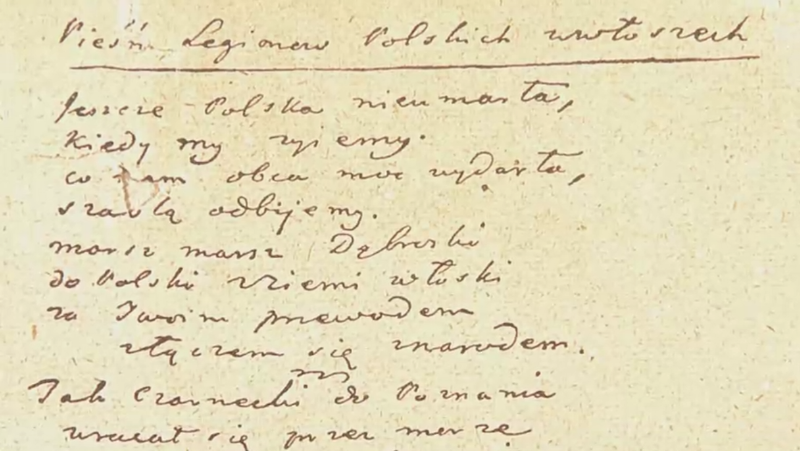 Pieśń Legionow Polskich wewłoszech
Jeszcze Polska nieumarła,
kiedy my żyiemy.
co nam obca moc wydarła,
szablą odbijemy.
marsz marsz Dąbroski
do Polski zziemi włoski
za Twoim przewodem
złączem się znarodem.
Jak Czarnecki do Poznania
wracał się przez morze